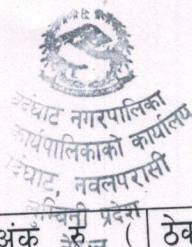 नगरपालिका
कार्यपालिकाको कार्यालय
नवलपरासी
लुम्बिनी प्रदेश
अंक रु ( ठेक